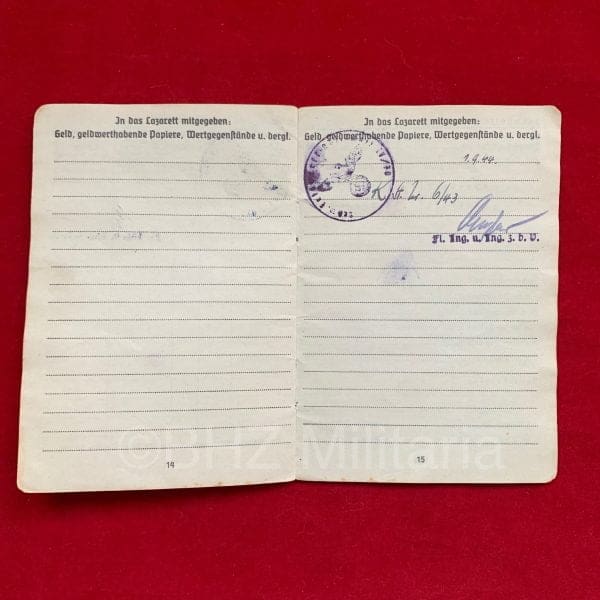 In das Lazarett mitgegeben:
Geld, geldwerthabende Papiere, Wertgegenstände u. dergl.
14
In das Lazarett mitgegeben:
Geld, geldwerthabende Papiere, Wertgegenstände u. dergl.
1.9.44.
K. St. L. 6/43
Fl. Ing. u. Ing. z. b. V.
15
©BHZ Militaria